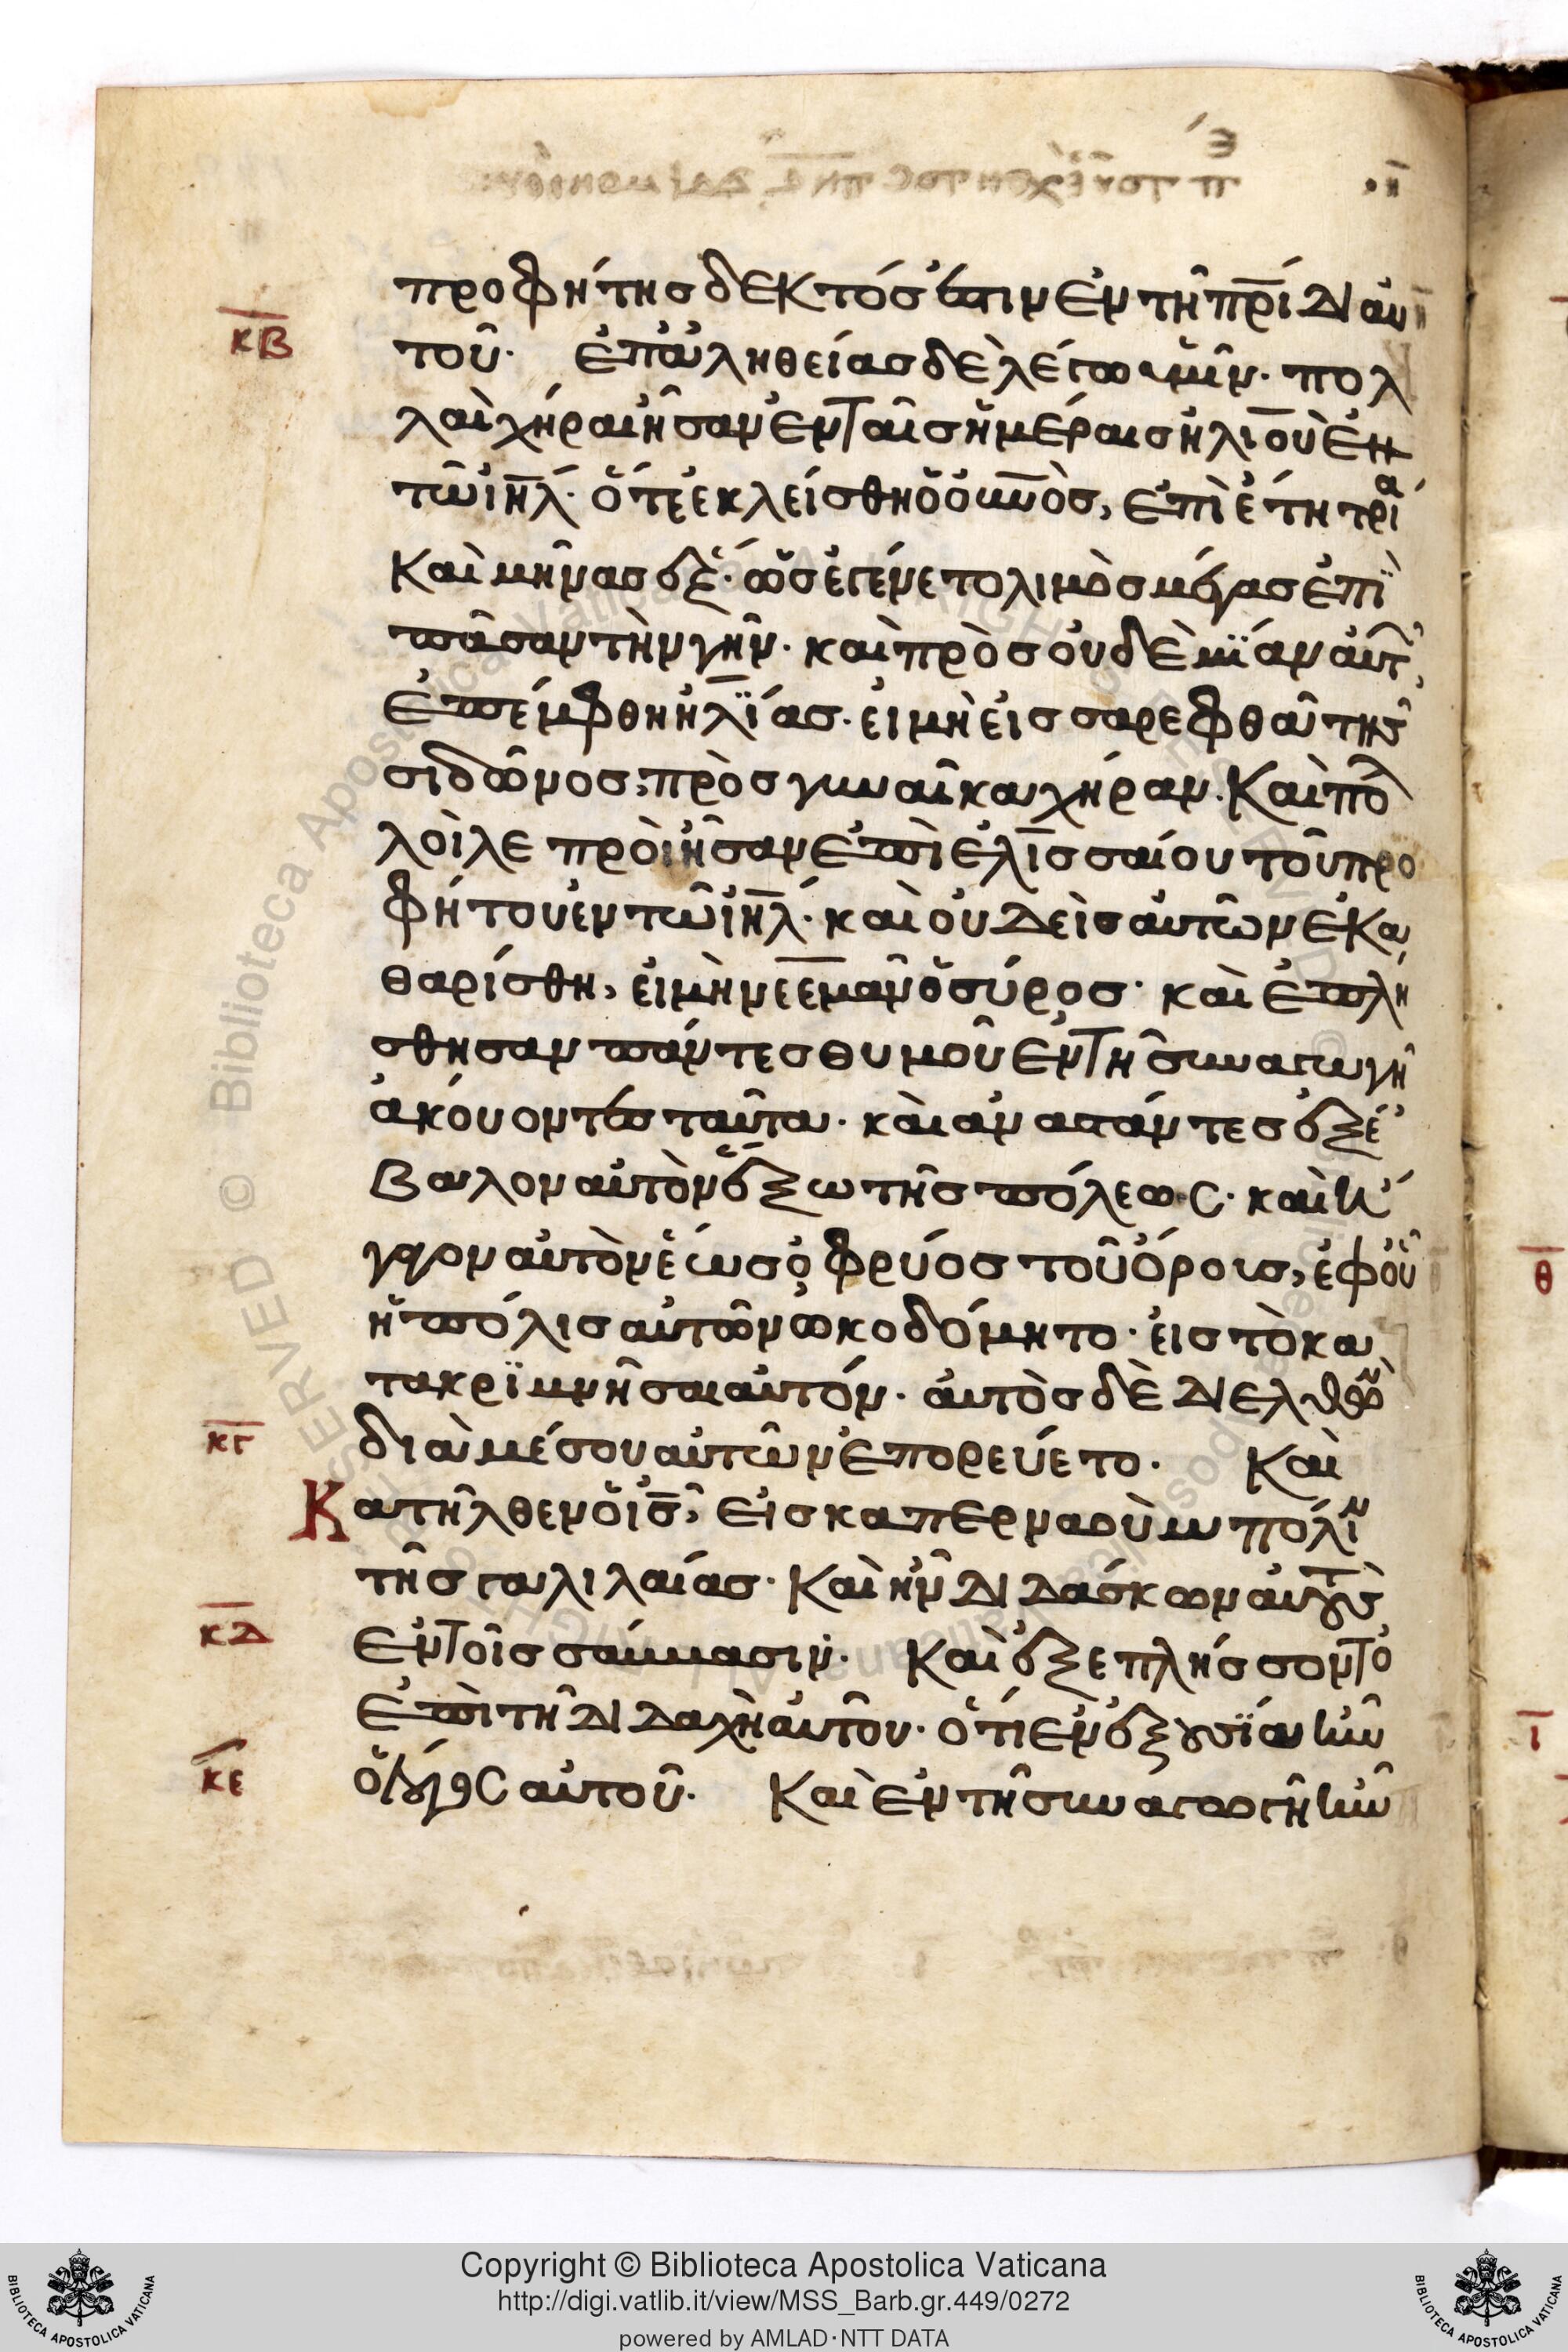 προφήτης δεκτός ἐστιν ἐν τῆ πρ̅ί̅δι αὐ
κβ
τοῦ. ἐπ' ἀληθείας δὲ λέγω ὑμῖν. πολ
λαὶ χῆραι ἦσαν ἐν ταῖς ἡμέραις ἠλιοὺ ἐν
τῶ ἰη̅λ. ὅτε ἐκλείσθη ὁ οὐ̅νὸς, ἐπὶ ἔτη τρία
καὶ μῆνας ἕξ. ὡς ἐγένετο λιμὸς μέγας ἐπὶ
πᾶσαν τὴν γῆν. καὶ πρὸς οὐδεμΐαν αὐτ
ἐπέμφθη ἠλΐας. εἰ μὴ εἰς σαρεφθὰ τῆς
σιδῶνος, πρὸς γυναῖκα χήραν. Καὶ πολ
λοὶ λεπροὶ ἦσαν ἐπὶ ἐλισσαίου τοῦ προ
φήτου ἐν τῶ ἰη̅λ. καὶ οὐδεὶς αὐτῶν ἐκα
θαρίσθη, εἰ μὴ νεεμὰν ὁ σύρος. καὶ ἐπλή
σθησαν πάντες θυμοῦ ἐν τῆ συναγωγῆ
ἀκούοντες ταῦτα. καὶ ἀναστάντες ἐξέ
βαλον αὐτὸν ἔξω τῆς πόλεως. καὶ ἤ
γαγον αὐτὸν ἕως ὀφρύος τοῦ ὄρους, ἐφ' οὗ
ἡ πόλις αὐτῶν ὠκοδόμητο. εἰς τὸ κα
τακρϊμνῆσαι αὐτόν. αὐτὸς δὲ διελθὼν
κγ
διὰ μέσου αὐτῶν ἐπορεύετο. Καὶ
Κατῆλθεν ὁ ι̅ς̅, εἰς καπερναοὺμ πόλιν
τῆς γαλιλαίας. Καὶ ἦν διδάσκων αὐτοὺς
κδ
ἐν τοῖς σάββασιν. Καὶ ἐξεπλήσσοντο
ἐπὶ τῆ διδαχῆ αὐτοῦ. ὅτι ἐν ἐξουσΐα ἦν
κε
ὁ λόγος αὐτοῦ. Καὶ ἐν τῆ συναγωγῆ ἦν
θ
ι
Copyright © Biblioteca Apostolica Vaticana
http://digi.vatlib.it/view/MSS_Barb.gr.449/0272
powered by AMLAD·NTT DATA
BIBLIOTECA APOSTOLICA VATICANA
BIBLIOTECA APOSTOLICA VATICANA